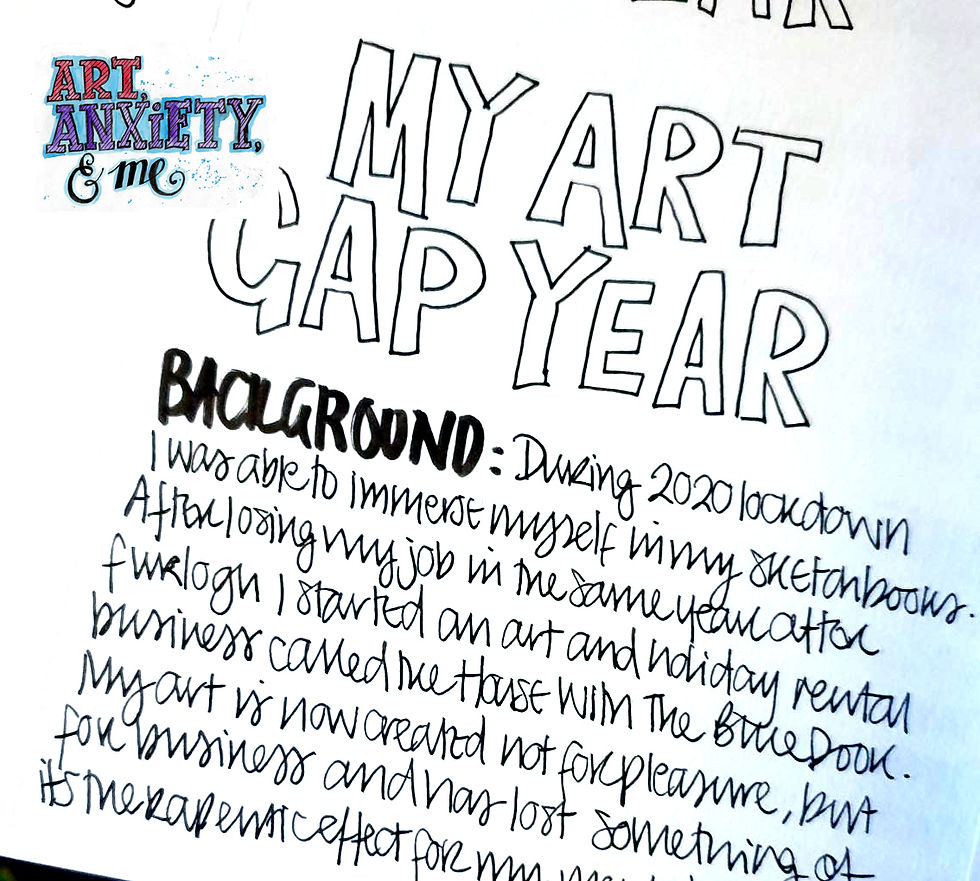 ART,
ANXiETY,
& me
MY ART
GAP YEAR
BACKGROUND: During 2020 lockdown
I was able to immerse myself in my sketchbooks.
After losing my job in the same year after
furlogh I started an art and holiday rental
business called The House With The Blue Door.
My art is now created not for pleasure, but
for business and has lost something of
its therapeutic effect for my